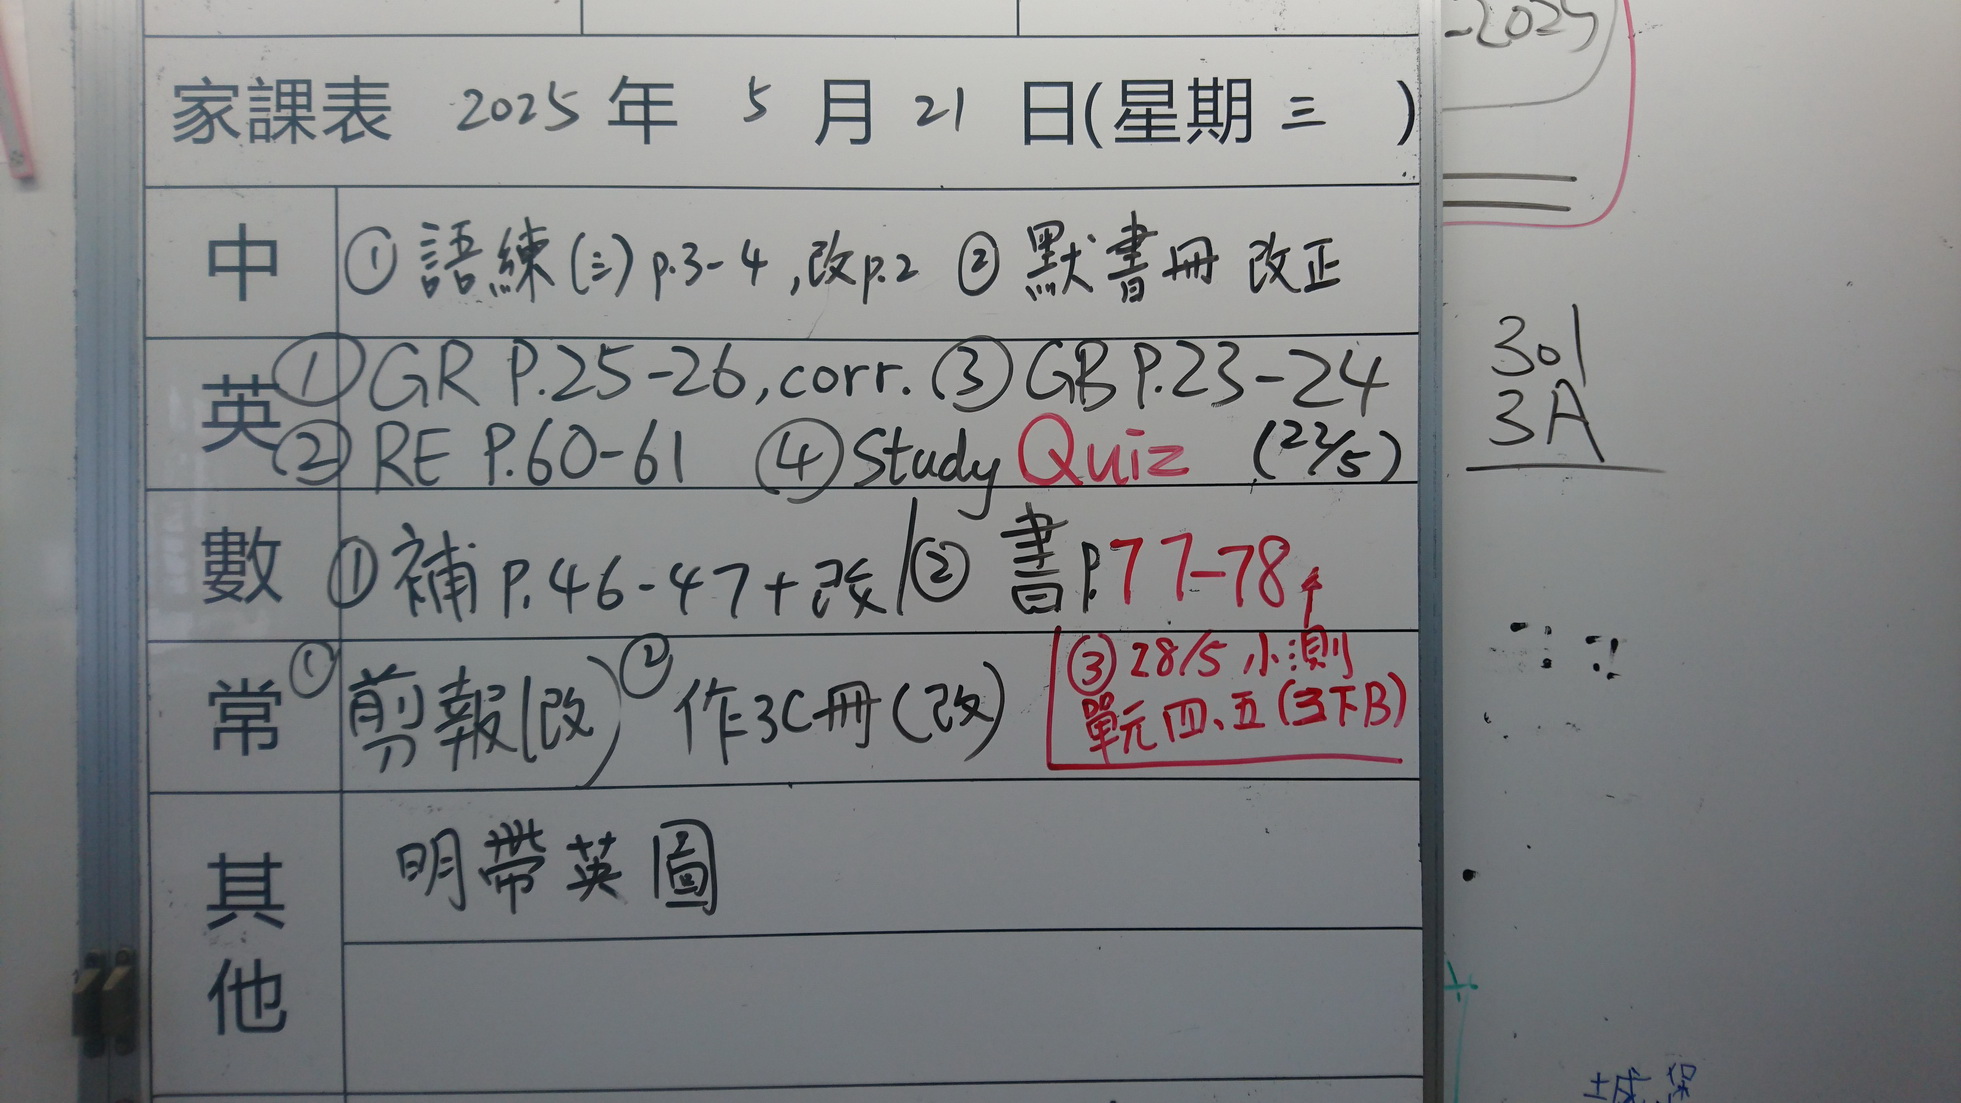 -2025
家課表 2025 年 5 月 21 日(星期 三 )
中 ① 語練(三) p.3-4, 改p.2 ② 默書冊 改正
英 ① GR P.25-26, corr. ③ GB P.23-24
② RE P.60-61 ④ Study Quiz (22/5)
301
3A
數 ① 補 P.46-47+改 ② 書 P.77-78
常 ① 剪報(改) ② 作3C冊(改) ③ 28/5 小測
單元四、五(三下B)
其他 明帶英圖